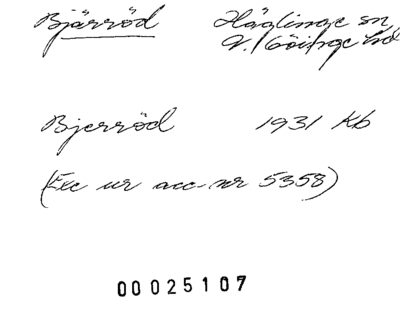 Bjärröd Häglinge sn,
V. Göinge hd
Bjerröd 1931 Kb
(Exc ur acc. nr 5358)
00025107